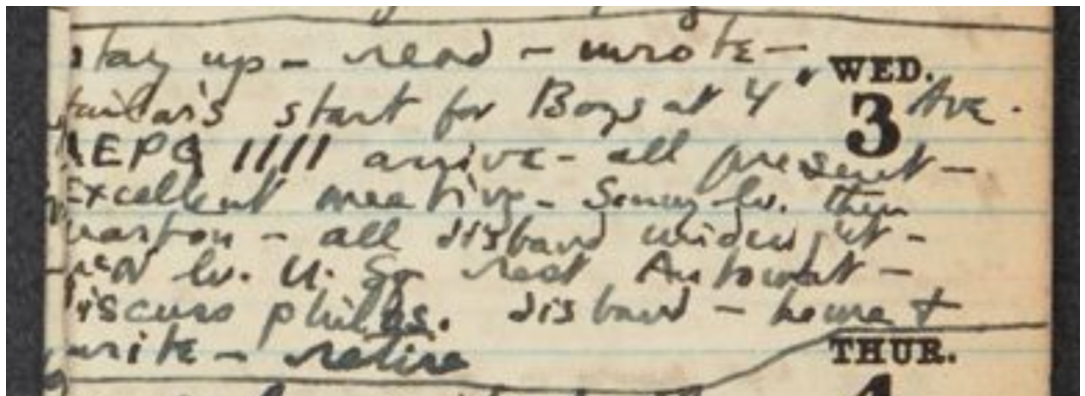 stay up – read – wrote –
WED.
start for Boys at 4" Ave.
3
arrive – all present –
Excellent meeting – Sonny lv. then
– all disband midnight –
lv. U. Sq rest Automat –
discuss philos. disband – home &
write – retire
THUR.